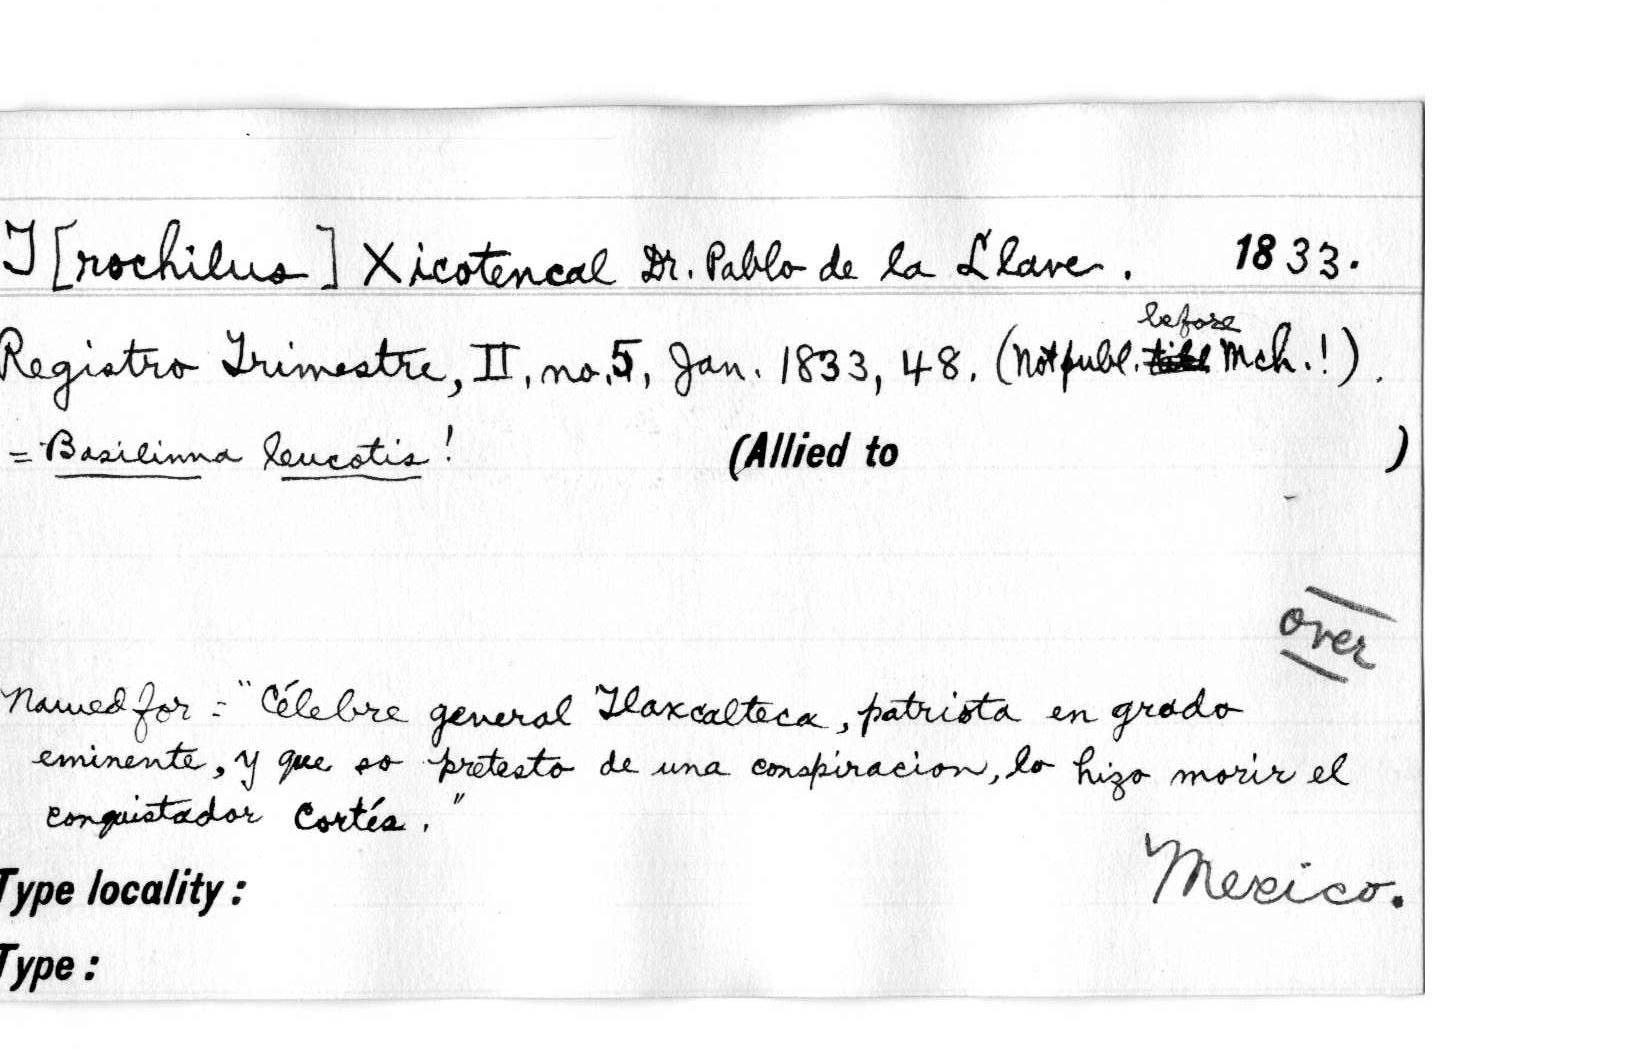 T[rochilus] Xicotencal Dr. Pablo de la Llave. 1833.
Registro Trimestre, II, no. 5, Jan. 1833, 48. (Not publ. before Mch.!).
= Basilinna leucotis! (Allied to )
over
Named for = "Célebre general Tlaxcalteca, patriota en grado
eminente, y que so pretesto de una conspiracion, lo hizo morir el
conquistador Cortés."
Mexico.
Type locality:
Type: